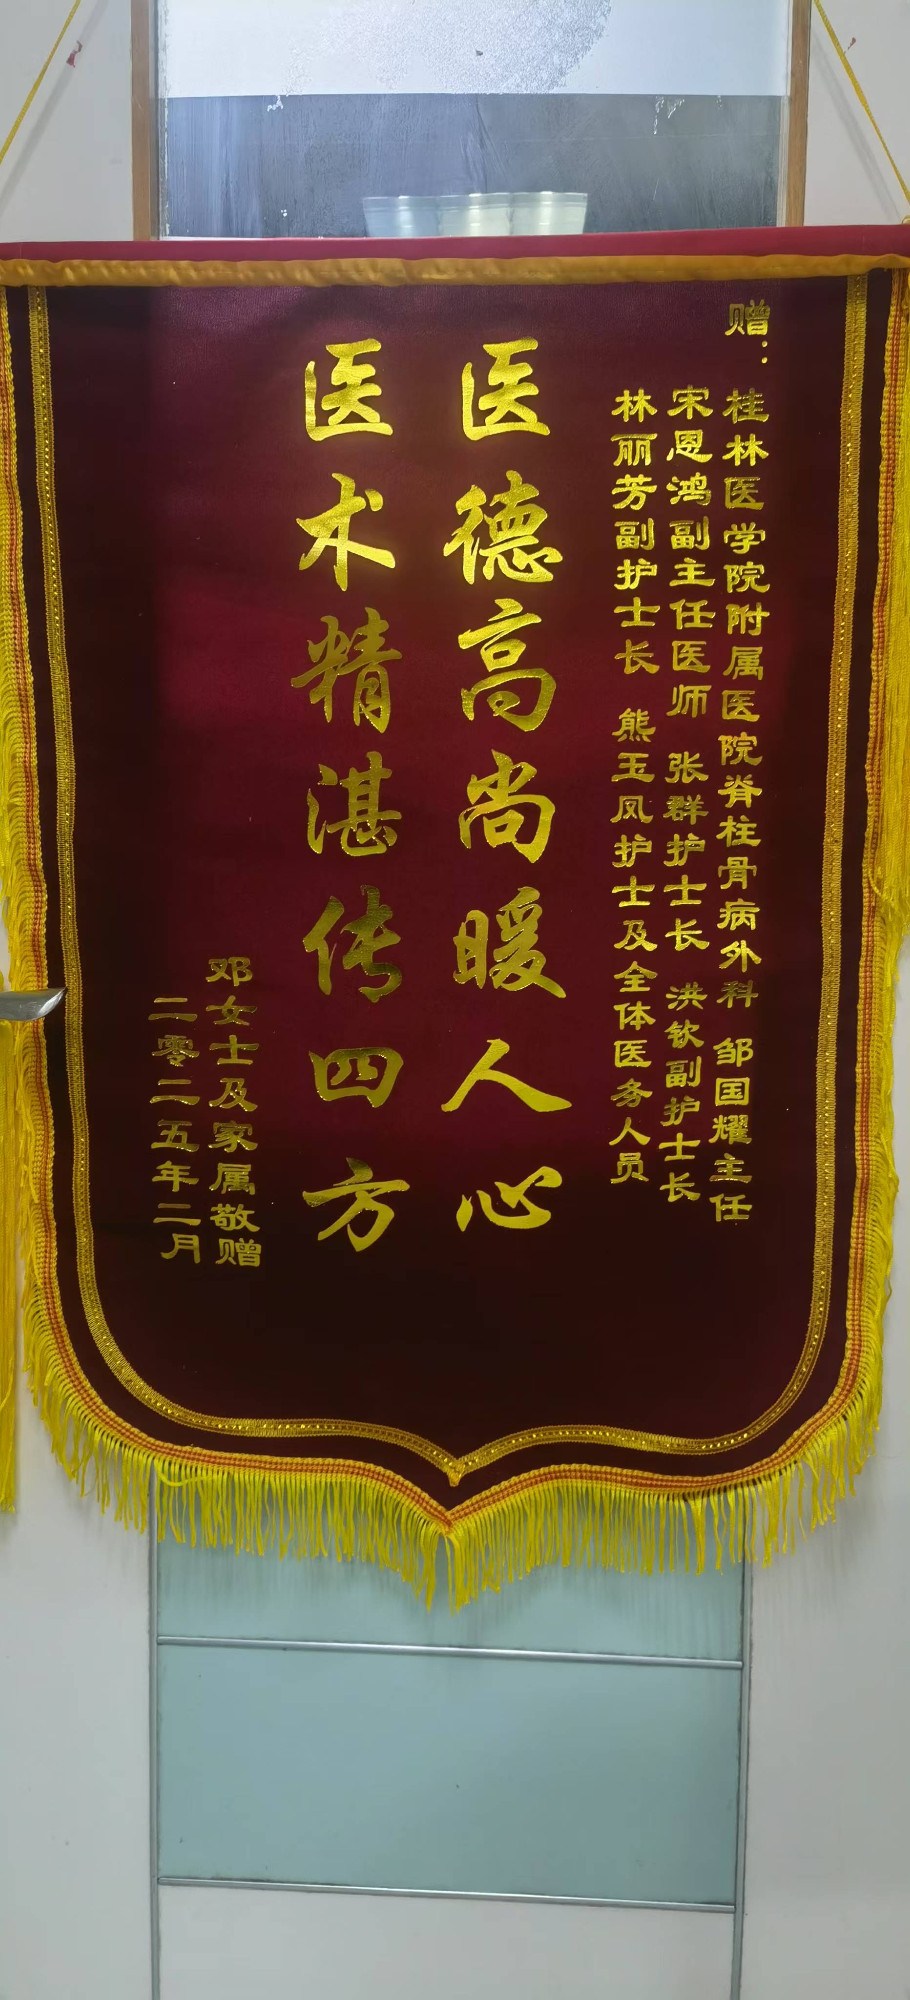 赠：桂林医学院附属医院脊柱骨病外科 邹国耀主任
宋恩鸿副主任医师 张群护士长 洪钦副护士长
林丽芳副护士长 熊玉凤护士及全体医务人员
医德高尚暖人心
医术精湛传四方
邓女士及家属敬赠
二零二五年二月